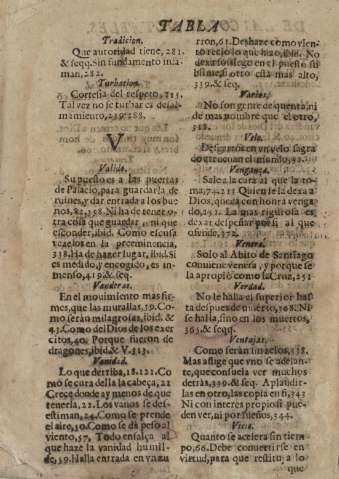 TABLA
Tradicion.
Que autoridad tiene, 281.
& seqq. Sin fundamento infa-
man, 282.
Turbation.
Cortesia del respeto, 215.
Tal vez no se turbar es desal-
mamiento, 239. 288.
V
Valido.
Su puesto es a las puertas
de Palacio, para guardarla de
ruines, y dar entrada a los bue-
nos, 82, 358. Ni ha de tener o-
tra cosa que guardar, ni que
esconder, ibid. Como escusa
zelos en la preeminencia,
338. Ha de hazer lugar, ibid. Si
es medido, y encogido, es in-
menso, 419. & seq.
Vanderas.
En el movimiento mas fir-
mes, que las murallas, 59. Co-
mo serán milagrosas, ibid. &
43. Como del Dios de los exer-
citos, 40. Porque fueron de
dragones, ibid & V. 313.
Vanidad.
Lo que derriba, 18. 121. Co-
mo se cura della la cabeça, 21
Crece donde ay menos de que
tenerla, 22. Los vanos se des-
estiman, 24. Como se prende
el aire, 50. Como se dà peso al
viento, 57. Todo ensalça al
que haze la vanidad humil-
de, 59. Halla entrada en va
rron, 61. Deshaze como vien-
to recio lo que hizo, ibid. No
dexar sossego en el puesto su-
blime, si otro està mas alto,
339. & seq.
Varios.
No son gente de quenta, ni
de mas nombre que el otro,
318.
Velo.
en vn velo sagra-
do truecan el mundo, 92.
Vengança.
Sale a la cara al que la to-
ma, 74. 215 Quien se la dexa a
Dios, queda con honra venga
do, 352. La mas rigurosa es
dexar de peñar por si al que
ofende, 372.
Venera.
Solo al Abito de Santiago
conuiene venera, y porque se
la apropiò como la Cruz, 251
Verdad.
No le halla el superior has-
ta despues de muerto, 108. Ni
se halla, sino en los muertos,
365, & seqq.
Ventajas.
Como seràn imanelos, 338.
Mas aflige que vno se adelan-
te, que consuela ver muchos
detràs, 339. & seq. Aplaudir-
las en otro, las copia en si, 343
Ni con interes propio se pue-
den ver, ni por sueños, 344.
Vicio.
Quanto se acelera sin tiem
po, 66. Debe conuertirse en
virtud, para que restituya lo
que